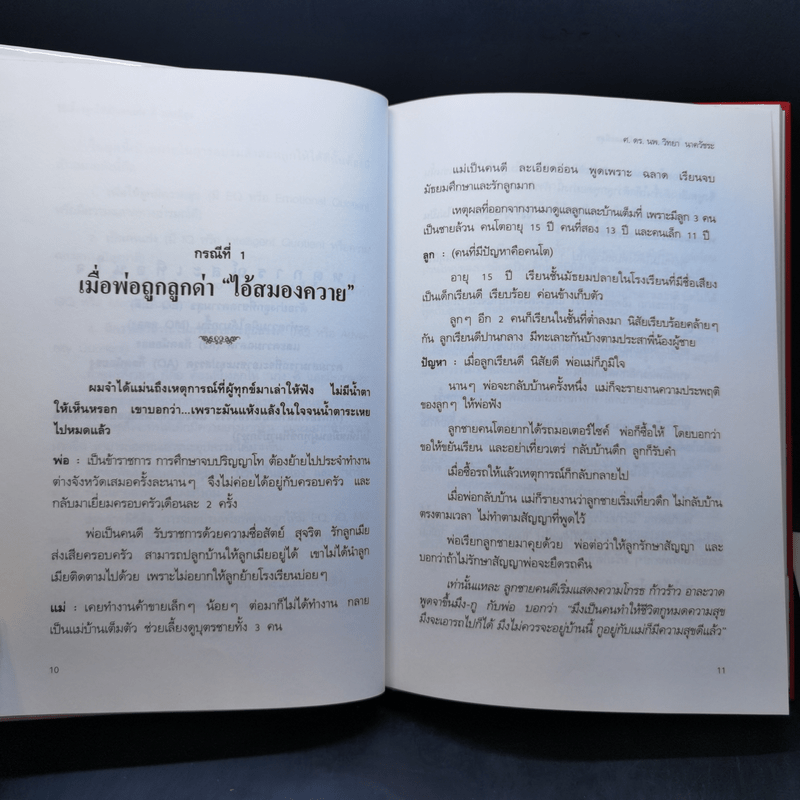 กรณีที่ 1
เมื่อพ่อถูกลูกด่า “ไอ้สมองควาย”
ผมจำได้แม่นถึงเหตุการณ์ที่ผู้ทุกข์มาเล่าให้ฟัง ไม่มีน้ำตา
ให้เห็นหรอก เขาบอกว่า...เพราะมันแห้งแล้งในใจจนน้ำตาระเหย
ไปหมดแล้ว
พ่อ : เป็นข้าราชการ การศึกษาจบปริญญาโท ต้องย้ายไปประจำทำงาน
ต่างจังหวัดเสมอครั้งละนานๆ จึงไม่ค่อยได้อยู่กับครอบครัว และ
กลับมาเยี่ยมครอบครัวเดือนละ 2 ครั้ง
พ่อเป็นคนดี รับราชการด้วยความซื่อสัตย์ สุจริต รักลูกเมีย
ส่งเสียครอบครัว สามารถปลูกบ้านให้ลูกเมียอยู่ได้ เขาไม่ได้นำลูก
เมียติดตามไปด้วย เพราะไม่อยากให้ลูกย้ายโรงเรียนบ่อยๆ
แม่ : เคยทำงานค้าขายเล็กๆ น้อยๆ ต่อมาก็ไม่ได้ทำงาน กลาย
เป็นแม่บ้านเต็มตัว ช่วยเลี้ยงดูบุตรชายทั้ง 3 คน
10
ศ. ดร. นพ. วิทยา นาควัชระ
แม่เป็นคนดี ละเอียดอ่อน พูดเพราะ ฉลาด เรียนจบ
มัธยมศึกษาและรักลูกมาก
เหตุผลที่ออกจากงานมาดูแลลูกและบ้านเต็มที่ เพราะมีลูก 3 คน
เป็นชายล้วน คนโตอายุ 15 ปี คนที่สอง 13 ปี และคนเล็ก 11 ปี
ลูก : (คนที่มีปัญหาคือคนโต)
อายุ 15 ปี เรียนชั้นมัธยมปลายในโรงเรียนที่มีชื่อเสียง
เป็นเด็กเรียนดี เรียบร้อย ค่อนข้างเก็บตัว
ลูกๆ อีก 2 คนก็เรียนในชั้นที่ต่ำลงมา นิสัยเรียบร้อยคล้ายๆ
กัน ลูกเรียนดีปานกลาง มีทะเลาะกันบ้างตามประสาพี่น้องผู้ชาย
ปัญหา : เมื่อลูกเรียนดี นิสัยดี พ่อแม่ก็ภูมิใจ
นานๆ พ่อจะกลับบ้านครั้งหนึ่ง แม่ก็จะรายงานความประพฤติ
ของลูกๆ ให้พ่อฟัง
ลูกชายคนโตอยากได้รถมอเตอร์ไซค์ พ่อก็ซื้อให้ โดยบอกว่า
ขอให้ขยันเรียน และอย่าเที่ยวเตร่ กลับบ้านดึก ลูกก็รับคำ
เมื่อซื้อรถให้แล้วเหตุการณ์ก็กลับกลายไป
เมื่อพ่อกลับบ้าน แม่ก็รายงานว่าลูกชายเริ่มเที่ยวดึก ไม่กลับบ้าน
ตรงตามเวลา ไม่ทำตามสัญญาที่พูดไว้
พ่อเรียกลูกชายมาคุยด้วย พ่อต่อว่าให้ลูกรักษาสัญญา และ
บอกว่าถ้าไม่รักษาสัญญาพ่อจะยึดรถคืน
เท่านั้นแหละ ลูกชายคนดีเริ่มแสดงความโกรธ ก้าวร้าว อาละวาด
พูดจาขึ้นมึง-กู กับพ่อ บอกว่า “มึงเป็นคนทำให้ชีวิตกูหมดความสุข
มึงจะเอารถไปก็ได้ มึงไม่ควรจะอยู่บ้านนี้ กูอยู่กับแม่ก็มีความสุขดีแล้ว”
11